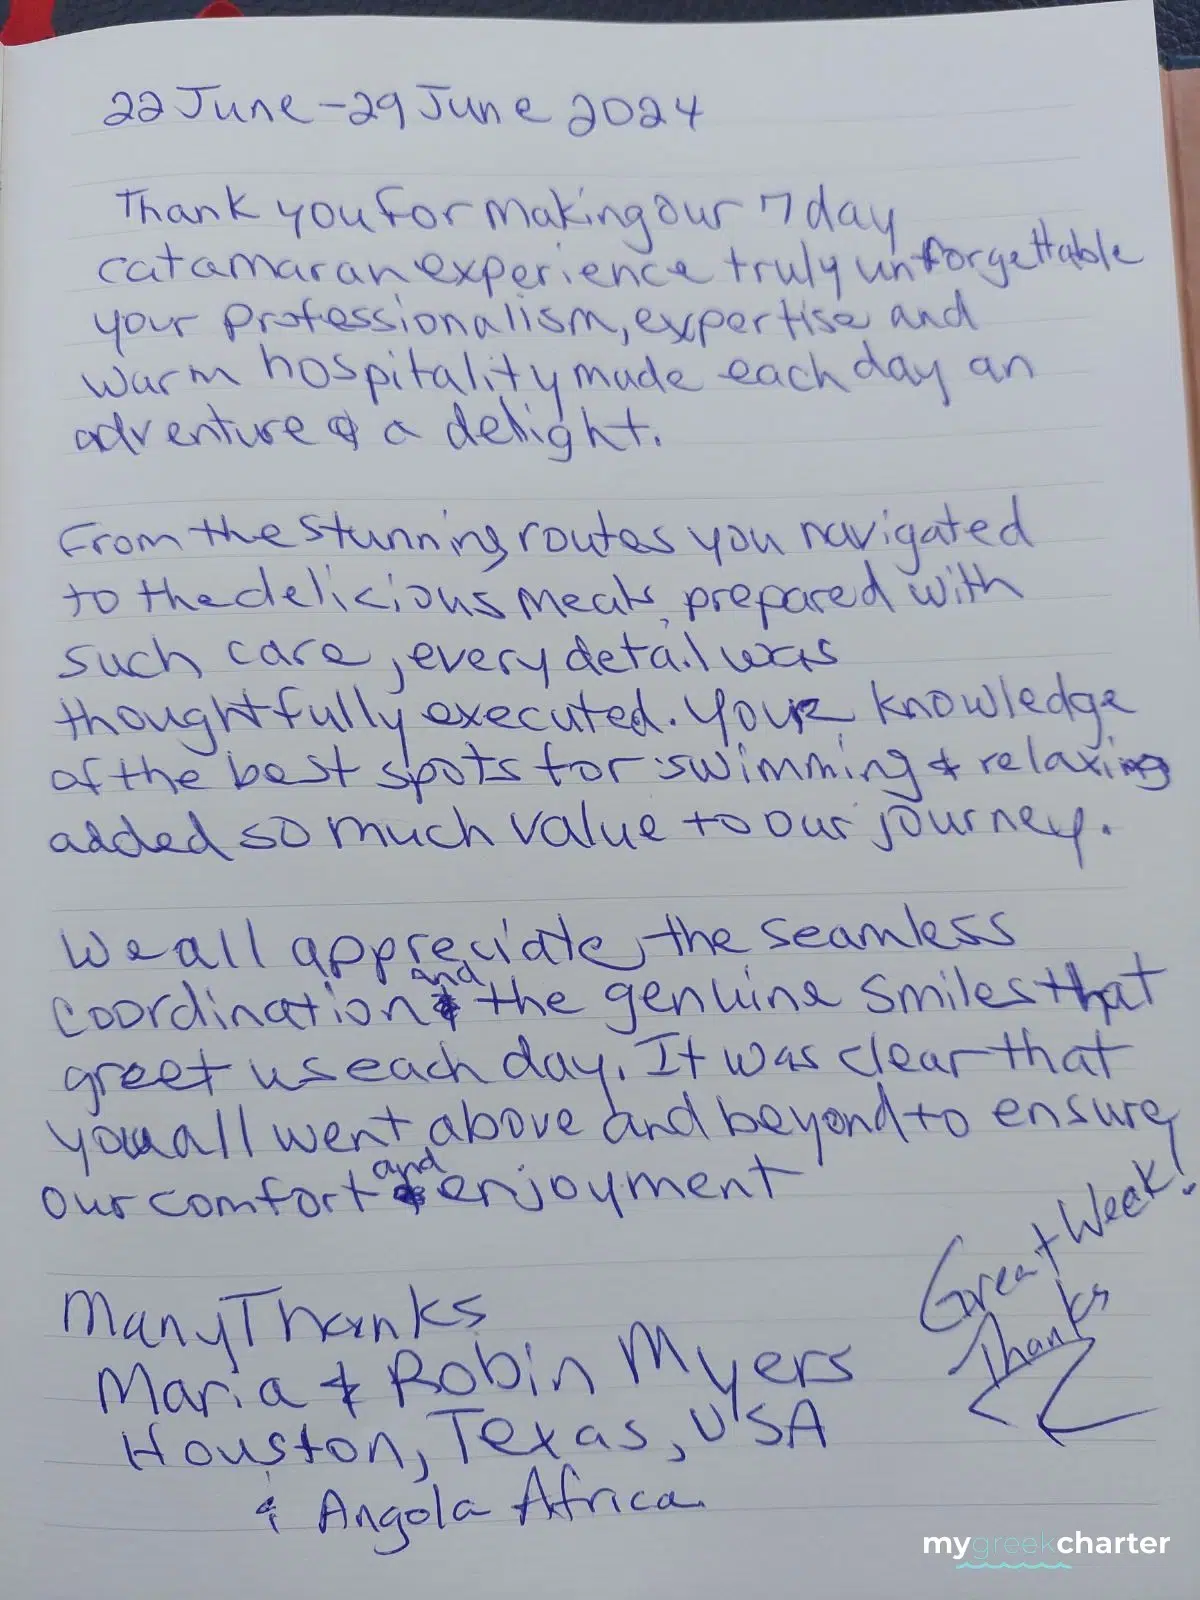 22 June - 29 June 2024
Thank you for making our 7 day
catamaran experience truly unforgettable
your professionalism, expertise and
warm hospitality made each day an
adventure & a delight.
From the stunning routes you navigated
to the delicious meals, prepared with
such care, every detail was
thoughtfully executed. Your knowledge
of the best spots for swimming & relaxing
added so much value to our journey.
We all appreciate, the seamless
coordination and the genuine smiles that
greet us each day. It was clear that
you all went above and beyond to ensure
our comfort and enjoyment
Great Week!
Thanks
Many Thanks
Maria & Robin Myers
Houston, Texas, USA
& Angola Africa.
mygreekcharter